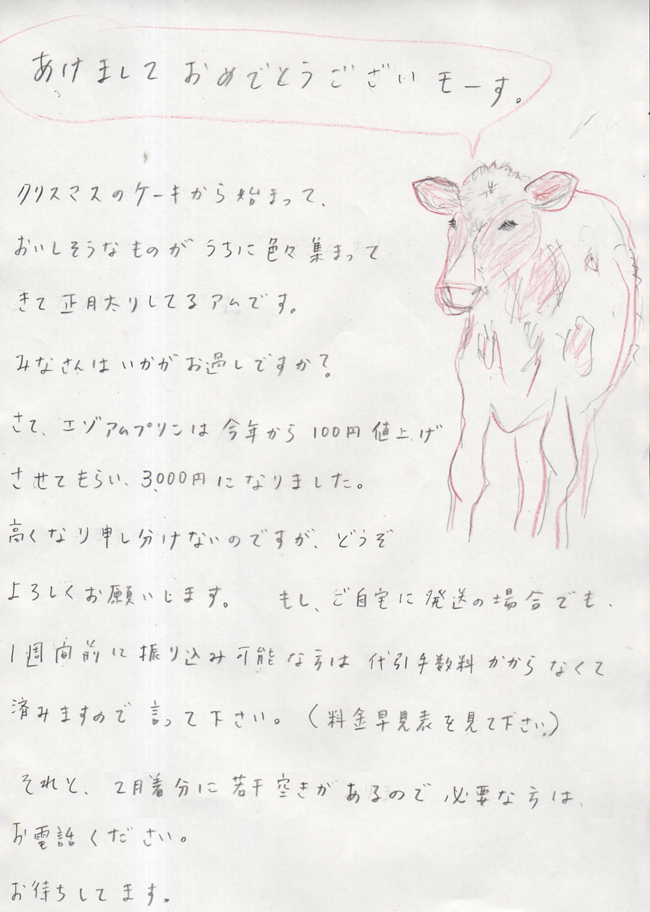 あけまして おめでとうございモーす。
クリスマスのケーキから始まって、
おいしそうなものが うちに色々集まって
きて正月太りしてるアムです。
みなさんはいかがお過しですか?
さて、エゾアムプリンは今年から100円値上げ
させてもらい、3,000円になりました。
高くなり申し分けないのですが、どうぞ
よろしくお願いします。 もし、ご自宅に発送の場合でも、
1週間前に振り込み可能な方は代引手数料かからなくて
済みますので言って下さい。(料金早見表を見て下さい)
それと、2月着分に若干空きがあるので必要な方は、
お電話ください。
お待ちしてます。